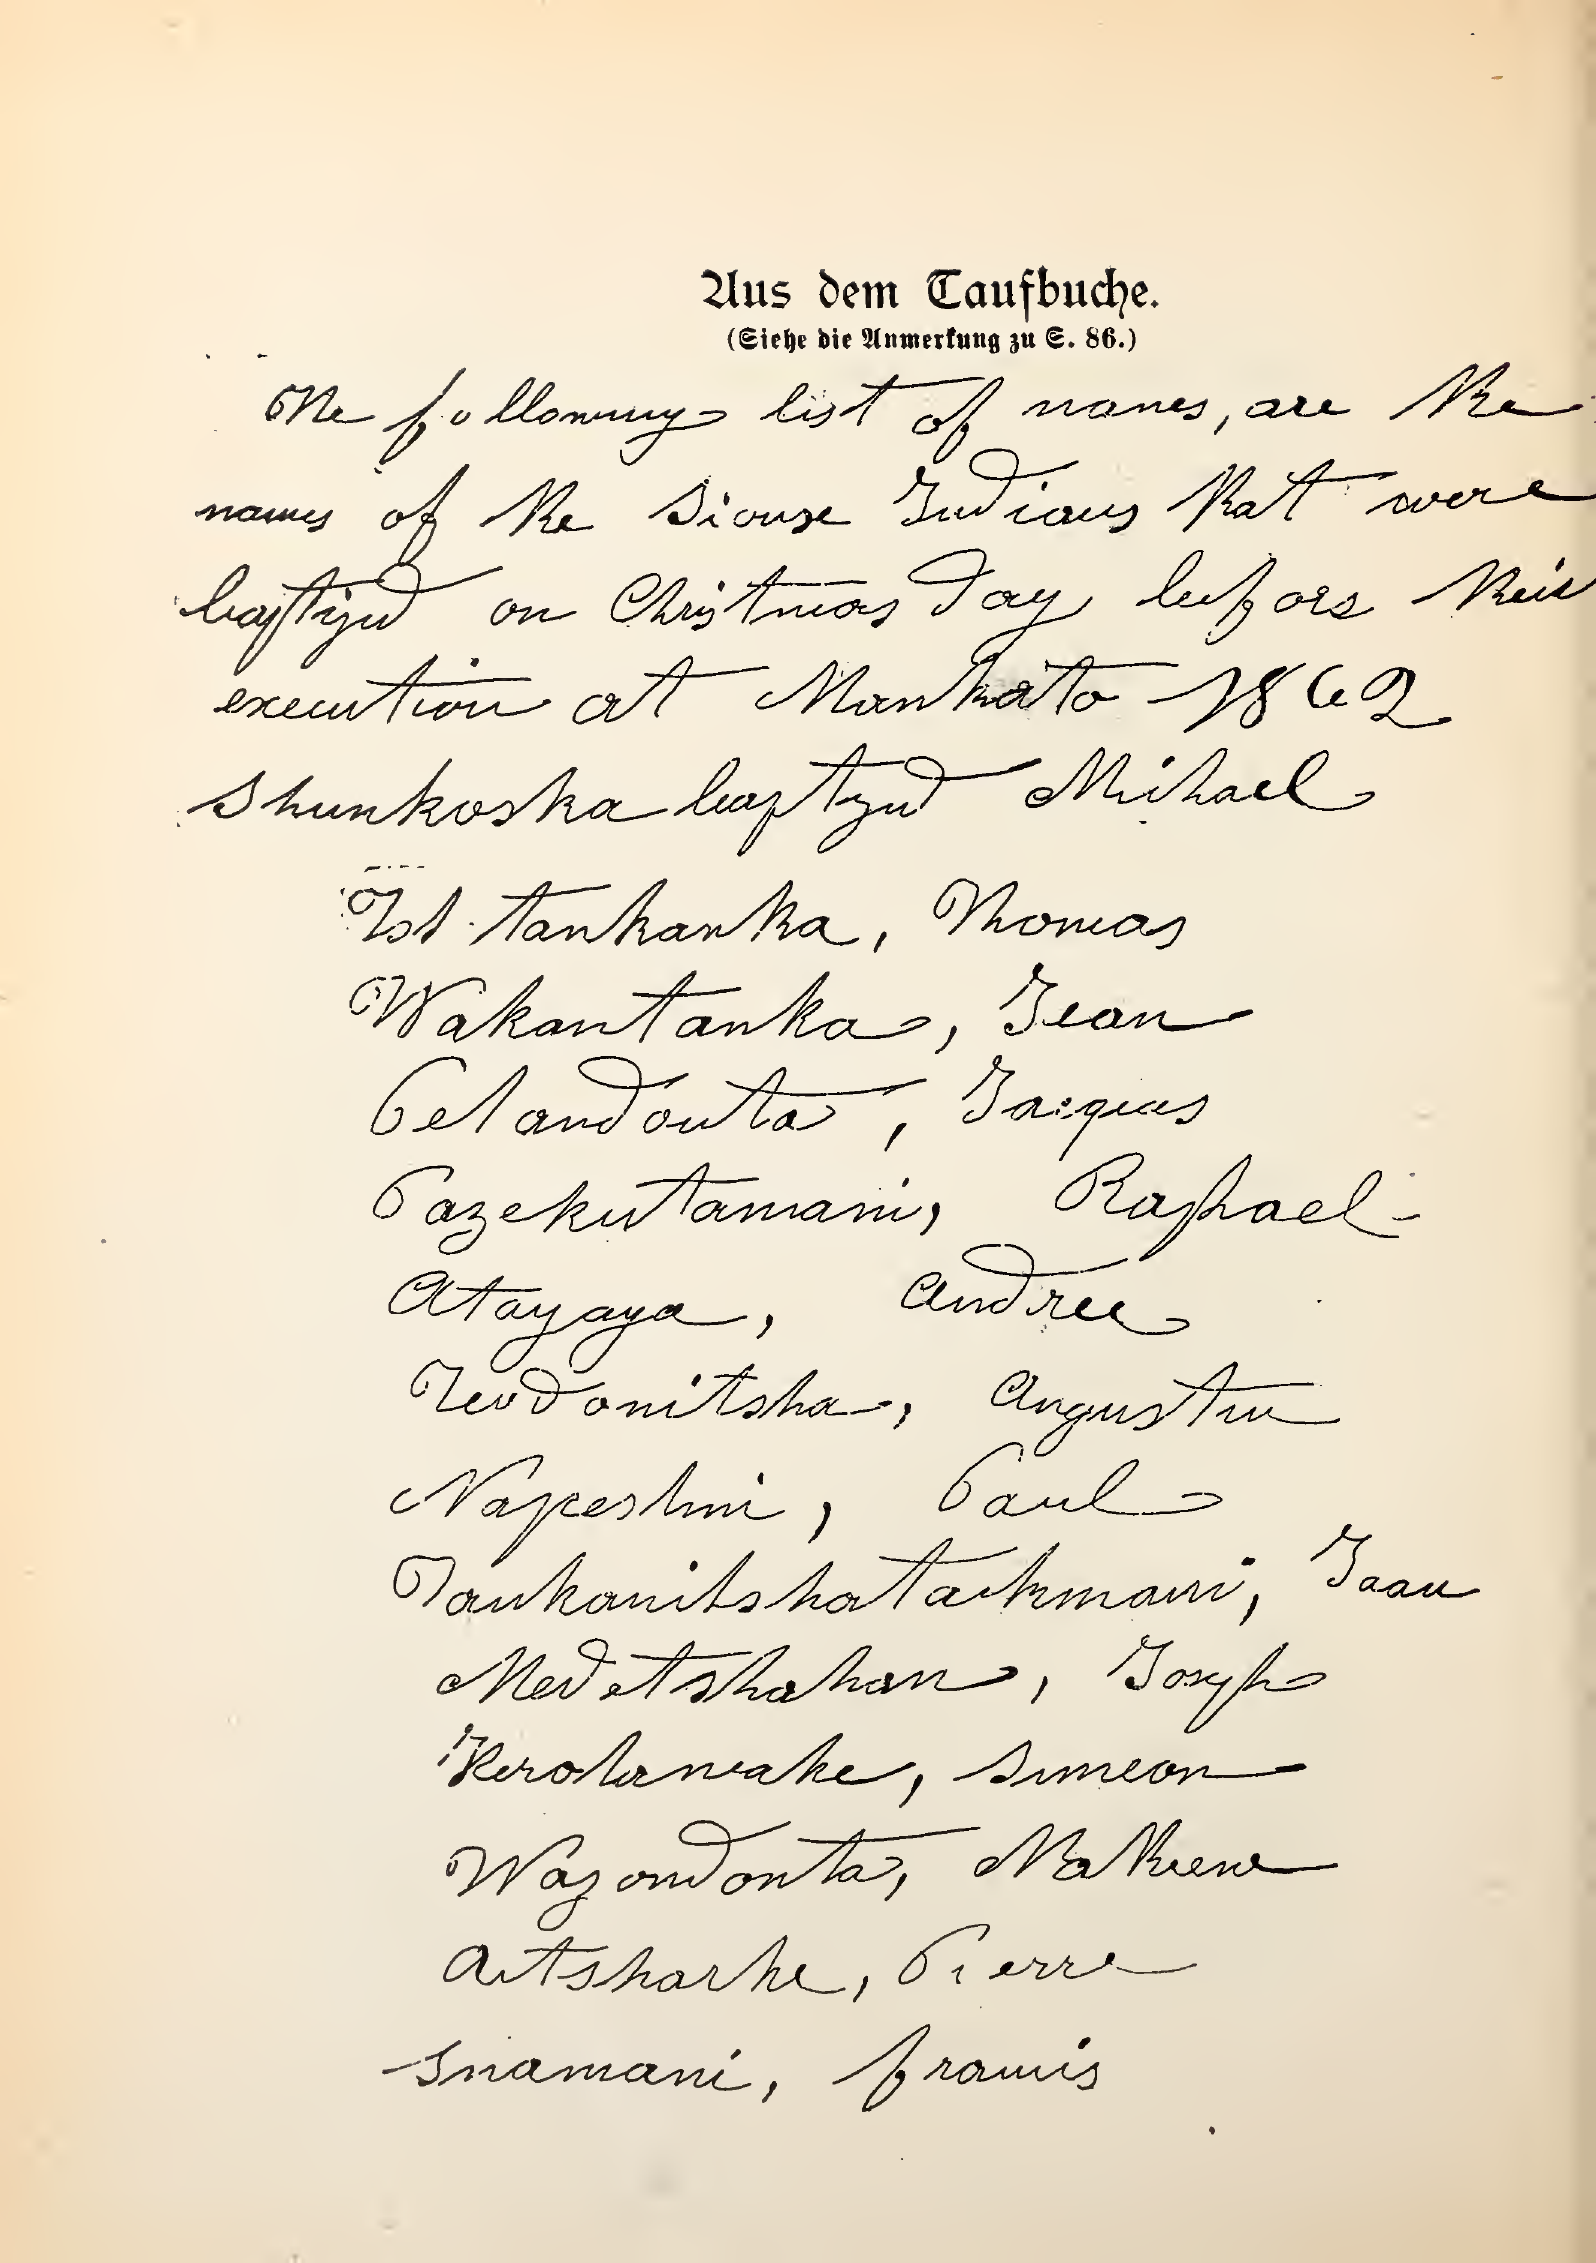 Aus dem Taufbuche.
(Siehe die Anmerkung zu S. 86.)
The following list of names, are the
names of the Siouxe Indians that were
baptized on Christmas Day before their
execution at Mankato 1862
Shunkoska baptyzed Mihael
tankanka, Thomas
Wakantanka, Jean
Petandouta, Jacques
Pazekutamani, Raphael
Atayaya, Andree
Augustin
Napeshni, Paul
Jaan
Medetshahan, Joseph
Simeon
Wazondonta, Mathieu
Aitsharke, Pierre
Snamani, francis